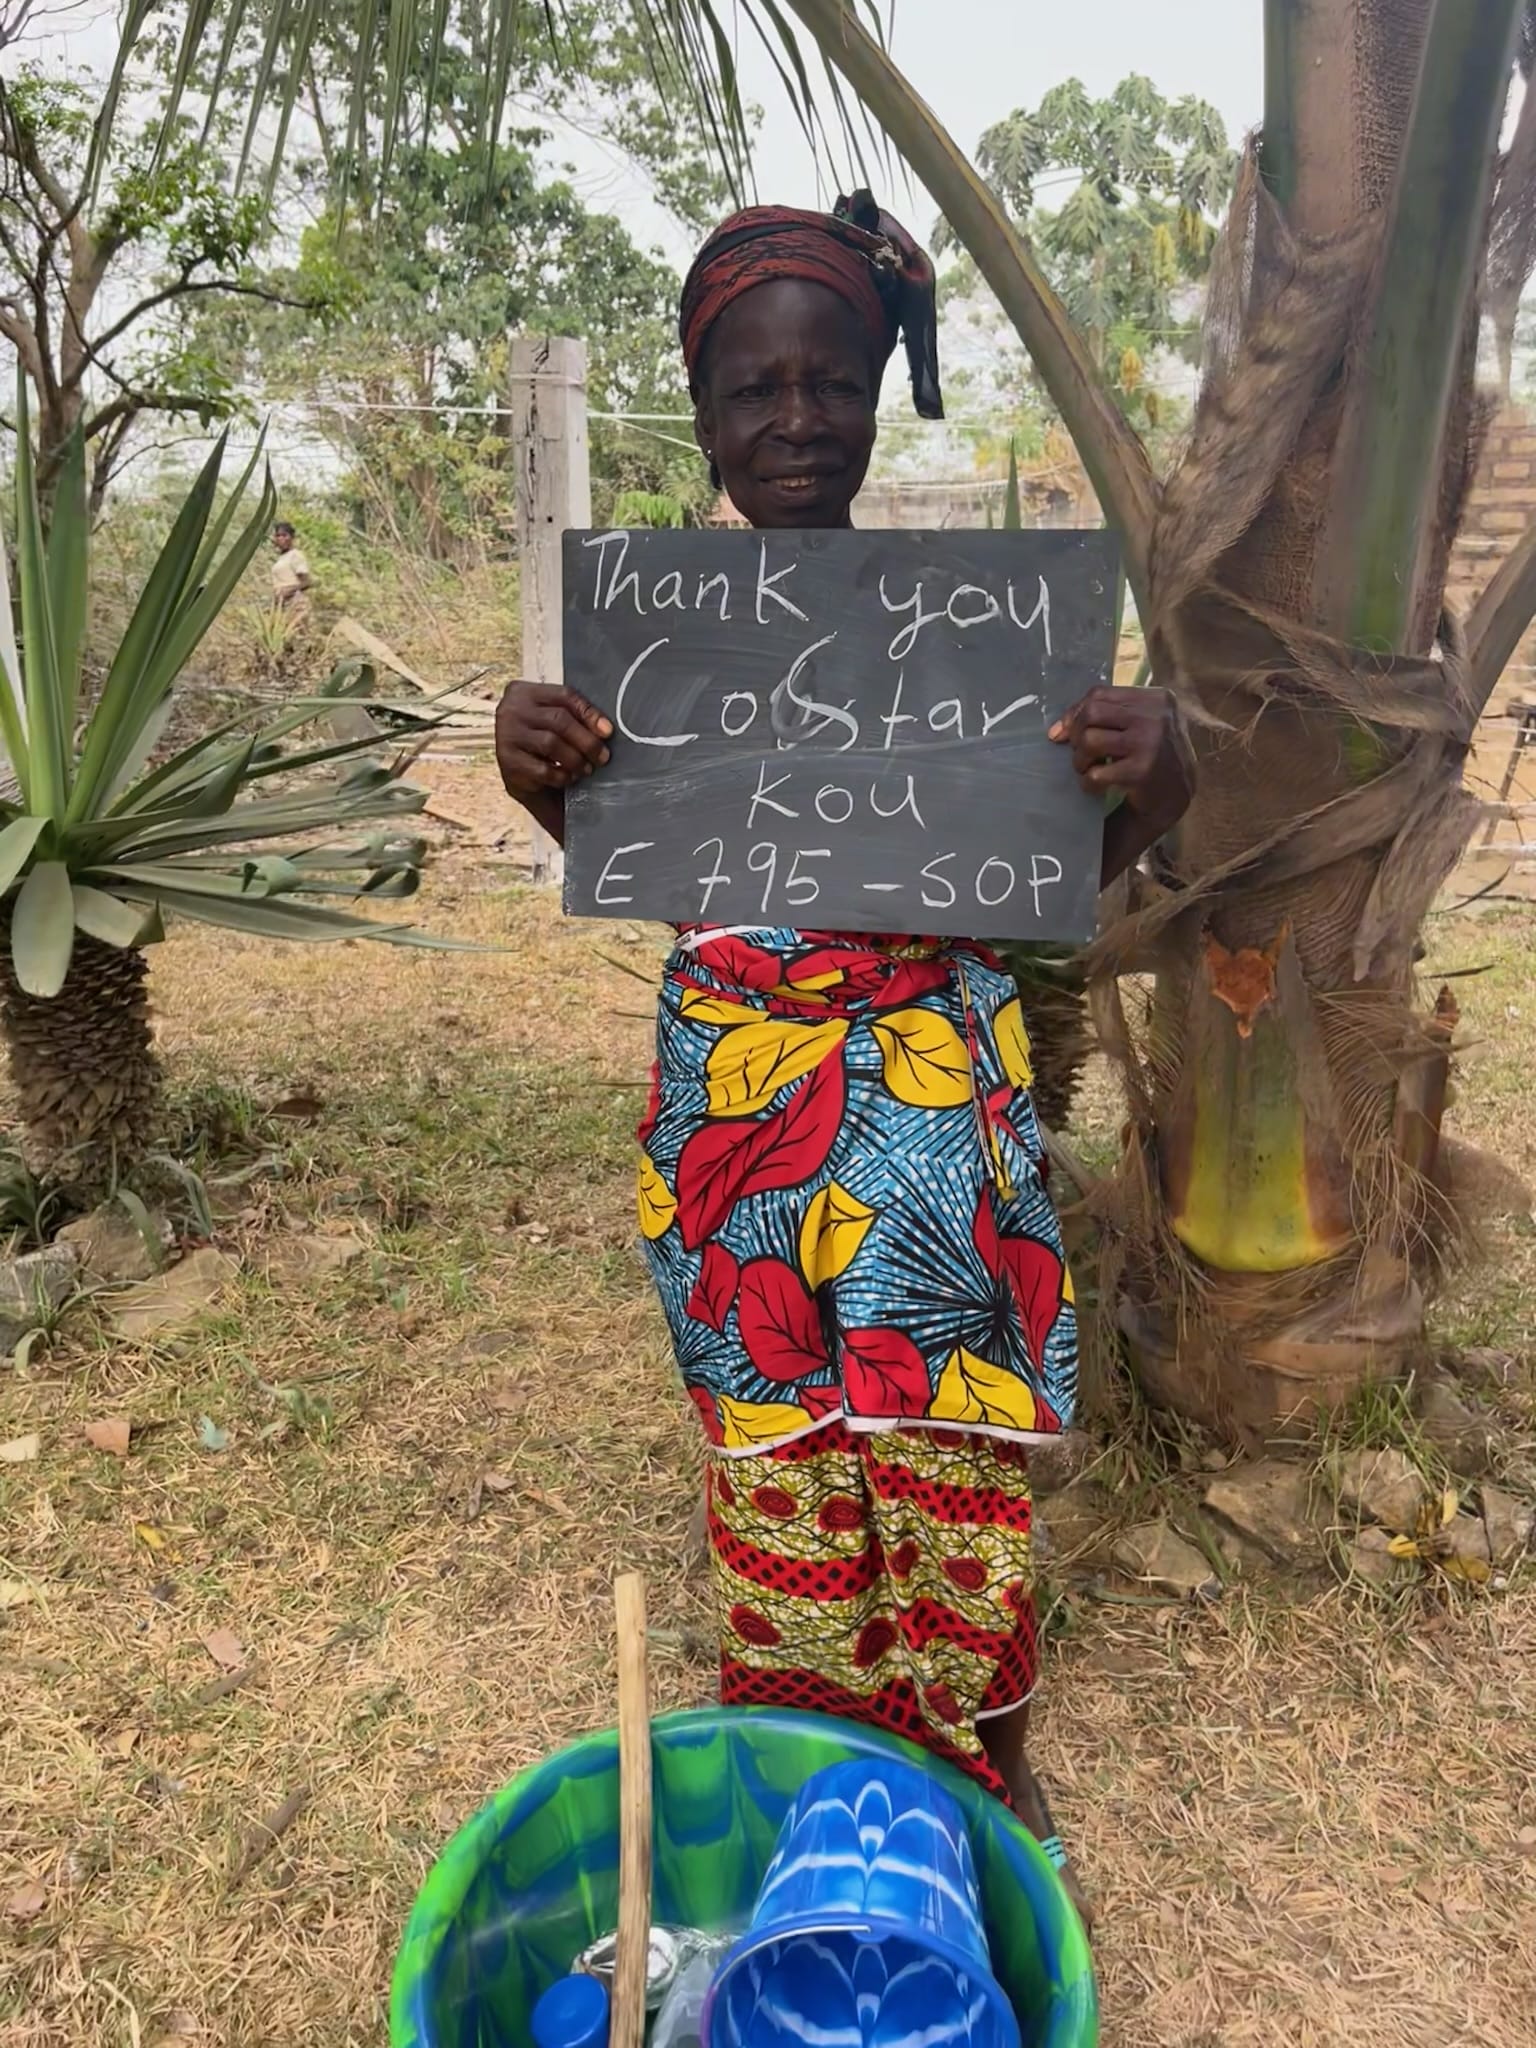 Thank you
CoStar
Kou
E 795 - SOP